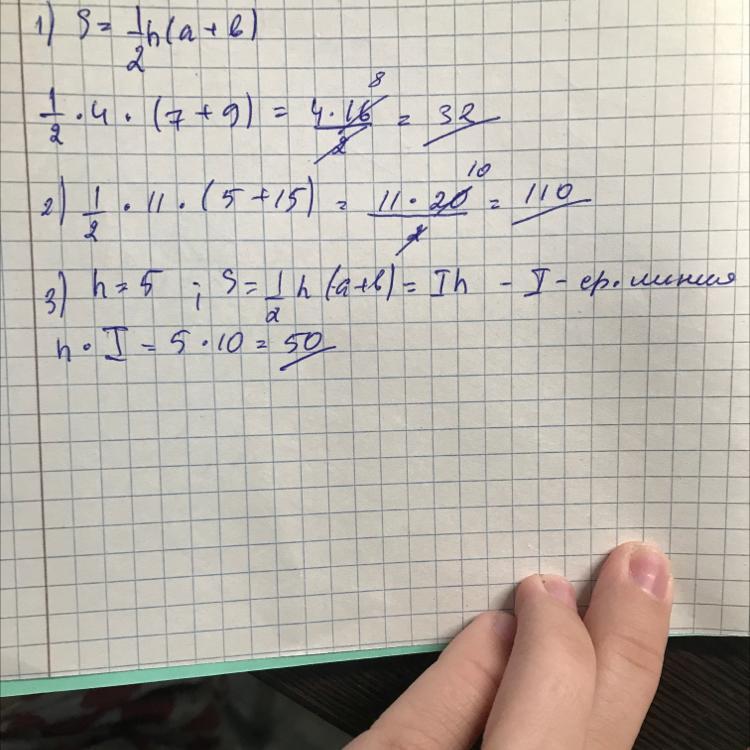 1) S = 1/2 h(a + b)
1/2 · 4 · (7 + 9) = 4 · 16/2 8 = 32
2) 1/2 · 11 · (5 + 15) = 11 · 20/2 10 = 110
3) h = 5 ; S = 1/2 h (a + b) = I h - I - ср. линия
h · I = 5 · 10 = 50